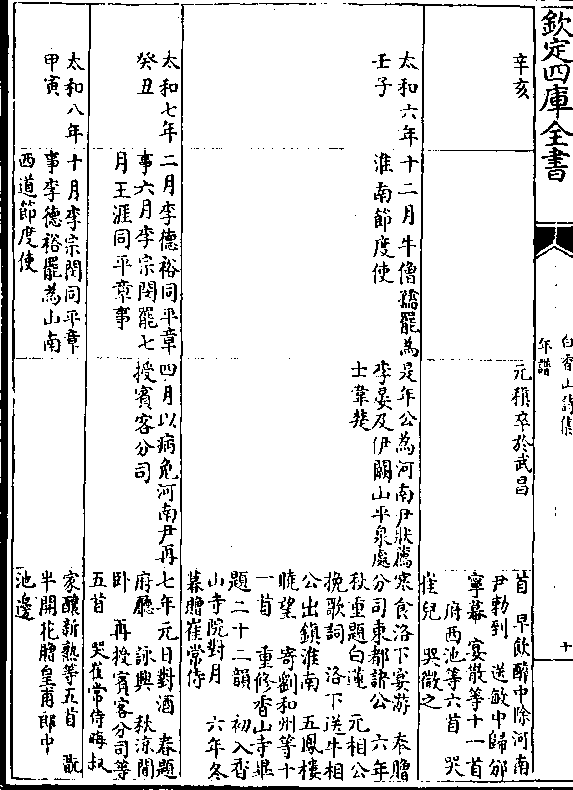 欽定四庫全書
白香山詩集
年譜
十
辛亥
元稹卒於武昌
首　早飲醉中除河南
尹勅到　送敏中歸邠
寧幕　宴散等十一首
府西池等六首　哭
崔兒　哭微之
太和六年
壬子
十二月牛僧孺罷為
淮南節度使
是年公為河南尹狀薦
李晏及伊闕山平泉處
士韋楚
寒食洛下宴游　奉贈
分司東都諸公　六年
秋重題白蓮　元相公
挽歌詞　洛下送牛相
公出鎮淮南　五鳳樓
曉望　寄劉和州等十
一首　重修香山寺畢
題二十二韻　初入香
山寺院對月　六年冬
暮贈崔常侍
太和七年
癸丑
二月李德裕同平章
事六月李宗閔罷七
月王涯同平章事
四月以病免河南尹再
授賓客分司
七年元日對酒　春題
府廳　詠興　秋涼閒
臥　再授賓客分司等
五首　哭崔常侍晦叔
太和八年
甲寅
十月李宗閔同平章
事李德裕罷為山南
西道節度使
家釀新熟等五首　翫
半開花贈皇甫郎中
池邊